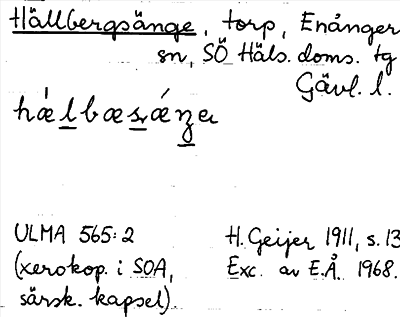 Hällbergsänge, torp, Enånger
sn, SÖ Häls. doms. tg
Gävl. l.
hǽlbæsǽŋa
ULMA 565:2
(xerokop. i SOA,
särsk. kapsel).
H. Geijer 1911, s. 13
Exc. av E.Å. 1968.